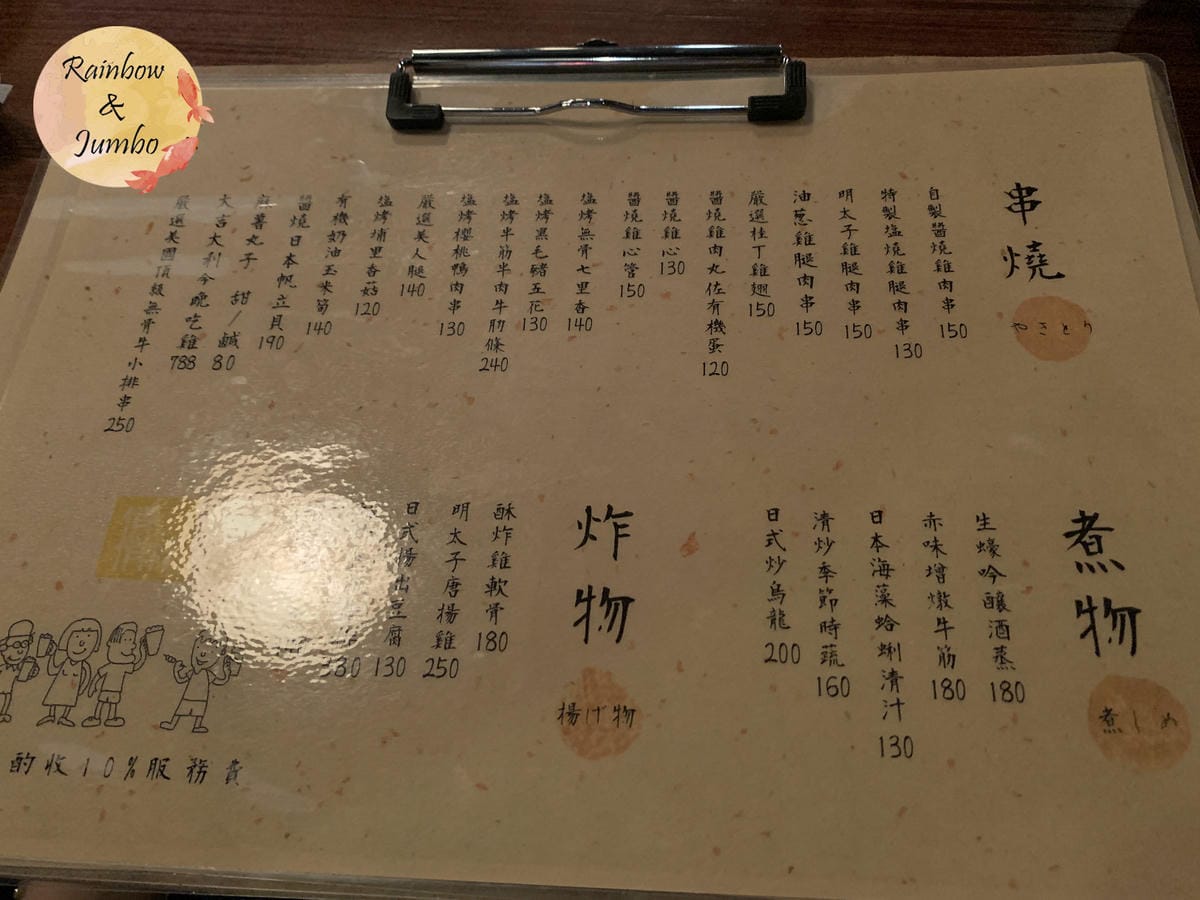 Rainbow
&
Jumbo
串燒
やきとり
自製醬燒雞腿肉串 150
特製塩燒雞腿肉串 130
明太子雞腿肉串 150
油蔥雞腿肉串 150
嚴選桂丁雞翅 150
醬燒雞肉丸佐有機蛋 120
醬燒雞心 130
醬燒雞心管 150
塩烤無骨七里香 140
塩烤黑毛豬五花 130
塩烤半筋半肉牛肋條 240
塩烤櫻桃鴨肉串 130
嚴選美人腿 140
塩烤埔里香菇 120
有機奶油玉米筍 140
醬燒日本帆立貝 190
麻薯丸子 甜/鹹 80
大吉大利今晚吃雞 788
嚴選美國頂級無骨牛小排串 250
煮物
煮しめ
生蠔吟釀酒蒸 180
赤味增燉牛筋 180
日本海藻蛤蜊清汁 130
清炒季節時蔬 160
日式炒烏龍 200
炸物
揚げ物
酥炸雞軟骨 180
明太子唐揚雞 250
日式揚出豆腐 130
酌收10%服務費